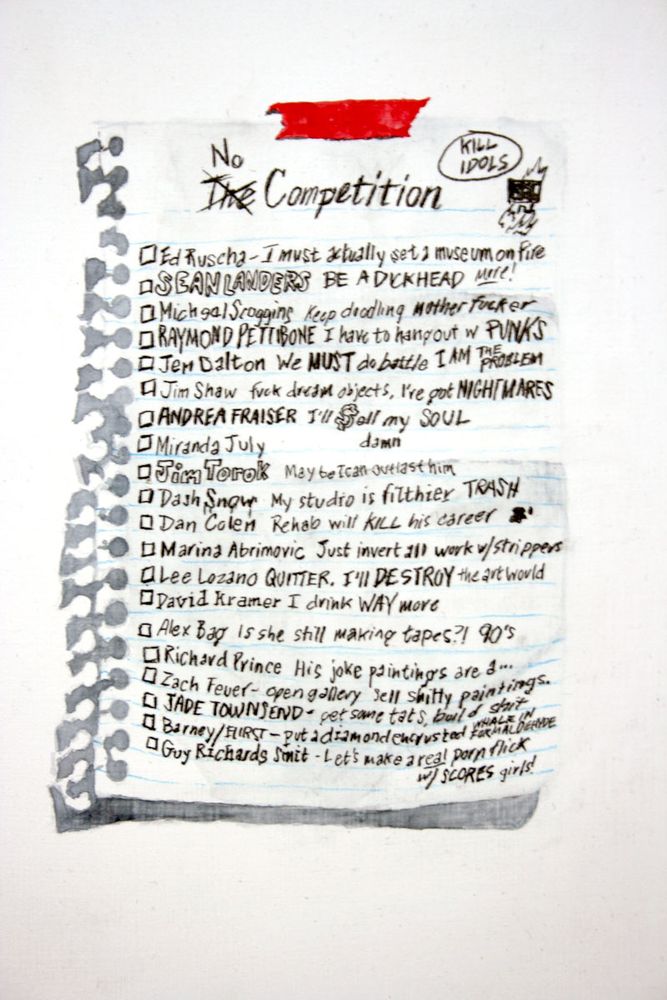 No
KILL
IDOLS
The Competition
Ed Ruscha - I must actually set a museum on fire
SEAN LANDERS BE A DICKHEAD more!
Micheal Scoggins Keep doodling mother fucker
RAYMOND PETTIBONE I have to hang out w PUNKS
Jen Dalton We MUST do battle I AM THE PROBLEM
Jim Shaw fuck dream objects, I've got NIGHTMARES
ANDREA FRAISER I'll $ell my SOUL
Miranda July damn
Jim Torok Maybe I can outlast him
Dash Snow My studio is filthier TRASH
Dan Colen Rehab will KILL his career
Marina Abrimovic Just invert all work w/strippers
Lee Lozano QUITTER. I'll DESTROY the art world
David Kramer I drink WAY more
Alex Bag Is she still making tapes?! 90's
Richard Prince His joke paintings are a...
Zach Feuer - open gallery sell shitty paintings.
JADE TOWNSEND - get some tats, build shit
Barney/HIRST - put a diamond encrusted WHALE IN FORMALDEHYDE
Guy Richards Smit - Let's make a real porn flick
w/ SCORES girls!